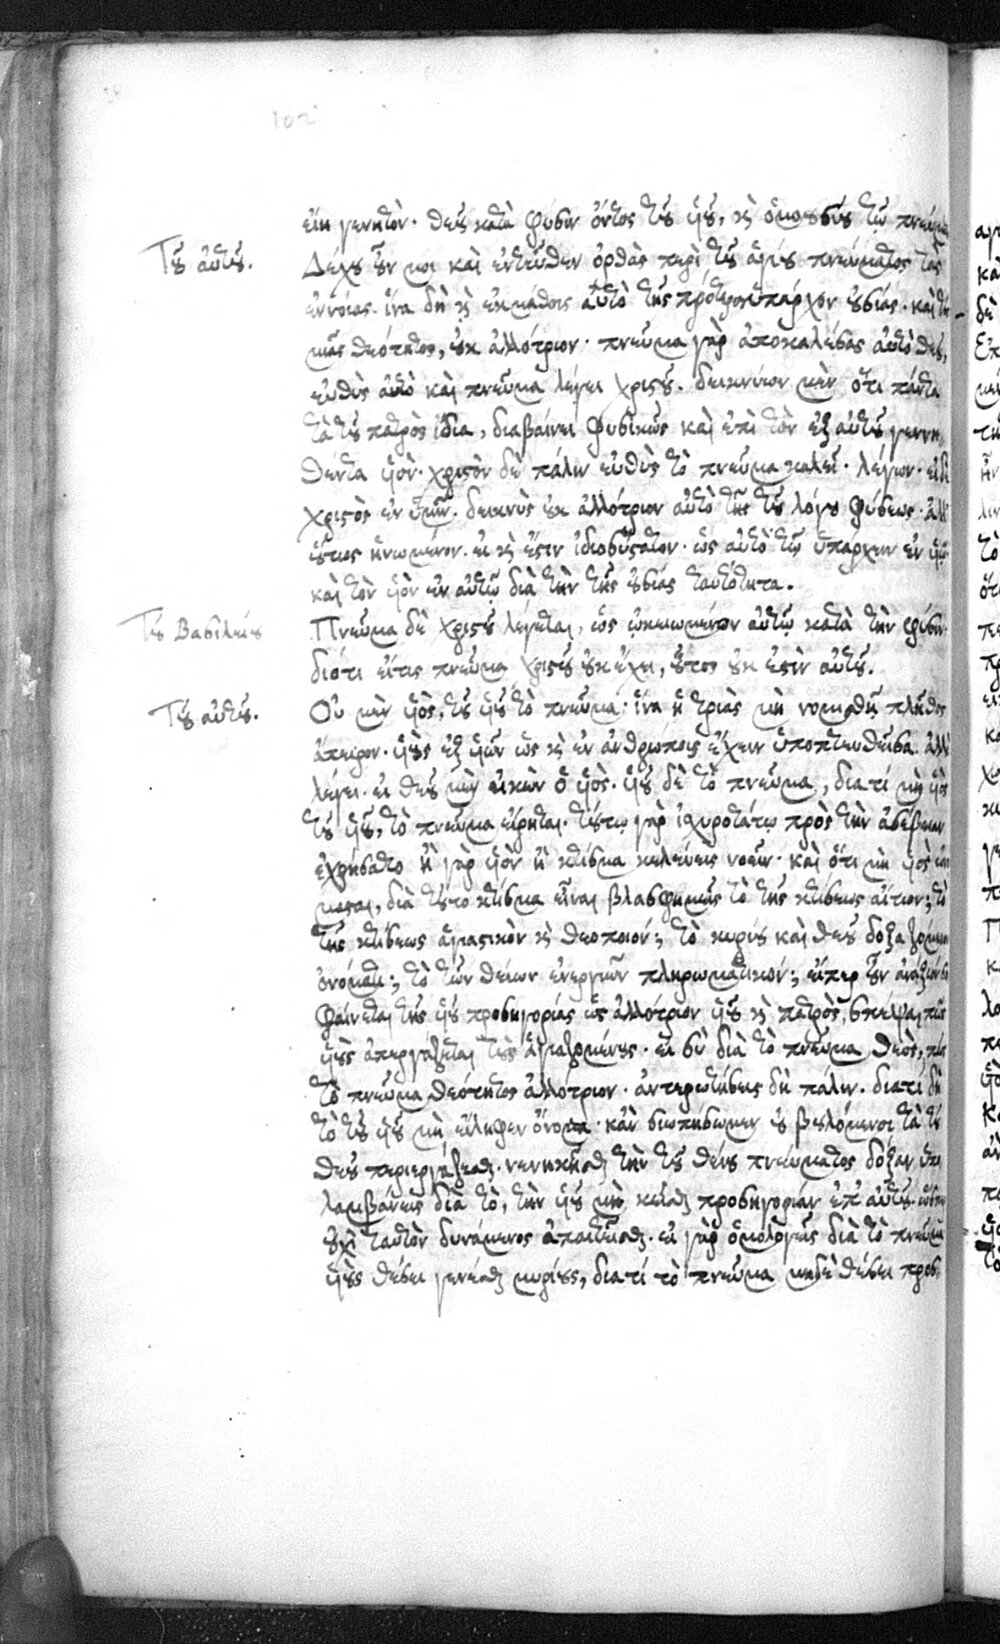 102
εἴη γενητὸν· θεοῦ κατὰ φύσιν ὄντος τοῦ υἱοῦ, καὶ ὁμοουσίου τῷ πνεύματι
Τοῦ αὐτοῦ.
Δέχου οὖν μοι καὶ ἐντεῦθεν ὀρθὰς περὶ τοῦ ἁγίου πνεύματος τὰς
ἐννοίας. ἵνα δὴ καὶ ἐκμάθοις αὐτὸ τῆς πρότερον ὑπάρχον οὐσίας· καὶ τῆς
μιᾶς θεότητος, οὐκ ἀλλότριον· πνεῦμα γὰρ ἀποκαλέσας αὐτὸ θεοῦ,
εὐθὺς αὐτὸ καὶ πνεῦμα λέγει χριστοῦ. δεικνύων μὲν ὅτι πάντα
τὰ τοῦ πατρὸς ἴδια, διαβαίνει φυσικῶς καὶ ἐπὶ τὸν ἐξ αὐτοῦ γεννη
θέντα υἱόν· χριστὸν δὲ πάλιν εὐθὺς τὸ πνεῦμα καλεῖ· λέγων· εἰ δὲ
χριστὸς ἐν ὑμῖν· δεικνὺς οὐκ ἀλλότριον αὐτὸ τῆς τοῦ λόγου φύσεως· ἀλλ'
οὕτως ἡνωμένον· εἰ καὶ ἔστιν ἰδιοσύστατον· ὡς αὐτὸ τῷ ὑπάρχειν ἐν υἱῷ·
καὶ τὸν υἱὸν ἐν αὐτῷ διὰ τὴν τῆς οὐσίας ταυτότητα.
Τοῦ Βασιλείου
Πνεῦμα δὲ χριστοῦ λέγεται, ὡς ᾠκειωμένον αὐτῷ κατὰ τὴν φύσιν·
διότι εἴτις πνεῦμα χριστοῦ οὐκ ἔχει, οὗτος οὐκ ἐστὶν αὐτοῦ.
Τοῦ αὐτοῦ.
Οὐ μὴν υἱὸς, τοῦ υἱοῦ τὸ πνεῦμα· ἵνα ἡ τριὰς μὴ νομισθῇ πλῆθος
ἄπειρον· υἱοὺς ἐξ υἱῶν ὡς καὶ ἐν ἀνθρώποις ἔχειν ὑποπτευθεῖσα. ἀλλὰ
λέγει· εἰ θεοῦ μὲν εἰκὼν ὁ υἱὸς· υἱοῦ δὲ τὸ πνεῦμα, διατί μὴ υἱὸς
τοῦ υἱοῦ, τὸ πνεῦμα εἴρηται· τούτῳ γὰρ ἰσχυροτάτῳ πρὸς τὴν ἀσέβειαν
ἐχρήσατο ἢ γὰρ υἱὸν ἢ κτίσμα κελεύεις νοεῖν· καὶ ὅτι μὴ υἱὸς ὠνό
μασται, διὰ τοῦτο κτίσμα εἶναι βλασφημεῖς τὸ τῆς κτίσεως αἴτιον; τὸ
τῆς κτίσεως ἁγιαστικὸν καὶ θεοποιόν; τὸ κυρίου καὶ θεοῦ δοξαζόμενον
ὀνόματι; τὸ τῶν θείων ἐνεργιῶν πληρωματικόν; εἴπερ οὖν ἀνάξιόν σοι
φαίνεται τῆς υἱοῦ προσηγορίας ὡς ἀλλότριον υἱοῦ καὶ πατρὸς, σκέψαι πῶς
υἱοὺς ἀπεργάζεται τοὺς ἁγιαζομένους· εἰ σὺ διὰ τὸ πνεῦμα θεὸς, πῶς
τὸ πνεῦμα θεότητος ἀλλότριον· ἀντερωτήσεις δὴ πάλιν· διατί δὴ
τὸ τοῦ υἱοῦ μὴ εἴληφεν ὄνομα· κἂν σιωπήσωμεν οὐ βουλόμενοι τὰ τοῦ
θεοῦ περιεργάζεσθαι· νενικῆσθαι τὴν τοῦ θείου πνεύματος δόξαν ὑπο
λαμβάνεις διὰ τὸ, τὴν υἱοῦ μὴ κεῖσθαι προσηγορίαν ἐπ' αὐτοῦ.
οὐχὶ ταυτὸν δυνάμενος ἀπαιτεῖσθαι· εἰ γὰρ ὁμολογεῖς διὰ τὸ πνεῦμα
υἱοὺς θέσει γενέσθαι κυρίους, διατί τὸ πνεῦμα μηδὲ θέσει προσ